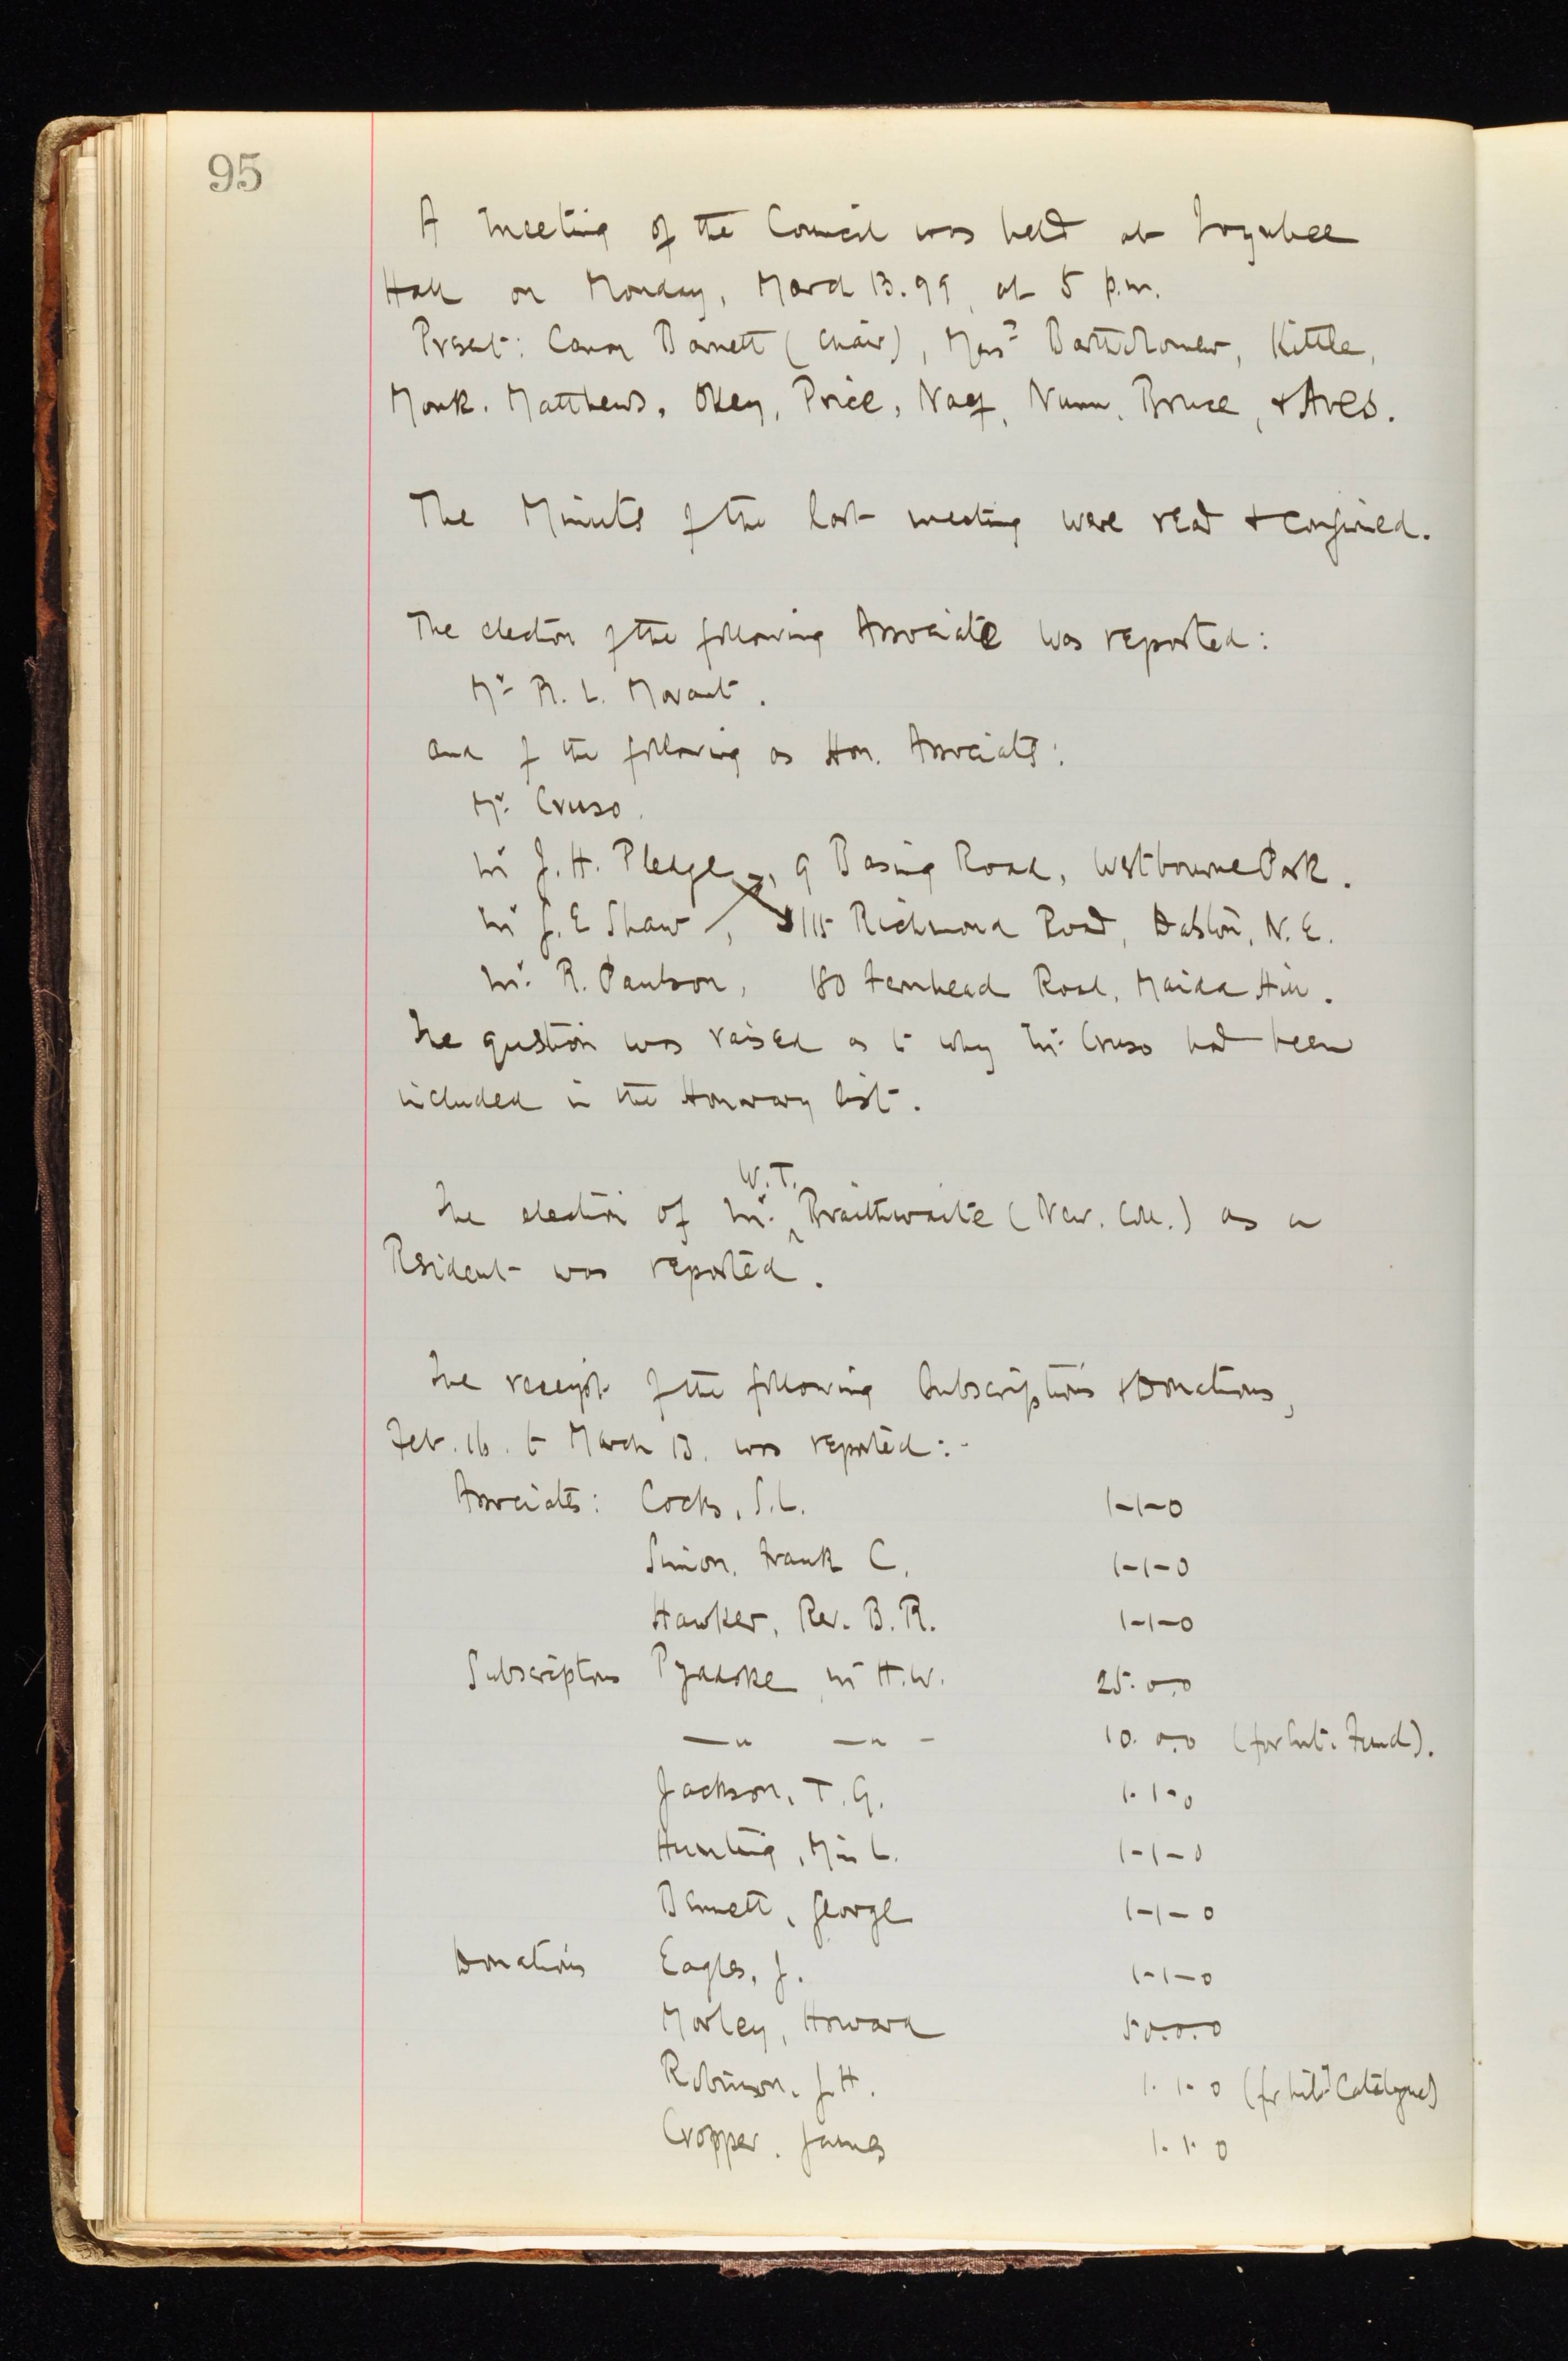 95
A meeting of the Council was held at Toynbee
Hall on Monday, March 13. 99, at 5 p.m.
Present: Canon Barnett (chair), Messrs Bartholomew, Kittle,
Monk, Matthews, Okey, Price, Naef, Nunn, Bruce, & Aves.
The Minutes of the last meeting were read & confirmed.
The election of the following Associate was reported:
Mr R. L. Morant.
and of the following as Hon. Associates:
Mr. Cruso.
Mr J. H. Pledge, 9 Basing Road, Westbourne Park.
Mr J. E Shaw, 115 Richmond Road, Dalston, N.E.
Mr. R. Paulson, 180 Fernhead Road, Maida Hill.
The question was raised as to why Mr Cruso had been
included in the Honorary list.
W.T.
The election of Mr. Braithwaite (New. Coll.) as a
Resident was reported.
The receipt of the following Subscriptions & Donations,
Feb. 16. to March 13. was reported:-
Associates: Cocks, S.L. 1-1-0
Simon, Frank C. 1-1-0
Hawker, Rev. B. R. 1-1-0
Subscriptions Pyddoke Mr H.W. 25.0.0
—"— —"— 10.0.0 (for Fund).
Jackson, T. G. 1.1.0
Hunting, Miss L. 1-1-0
Bennett, George 1-1-0
Donations Eagles, J. 1-1-0
Morley, Howard 50.0.0
Robinson, J. H. 1.1.0 (for Catalogue)
Cropper, James 1.1.0